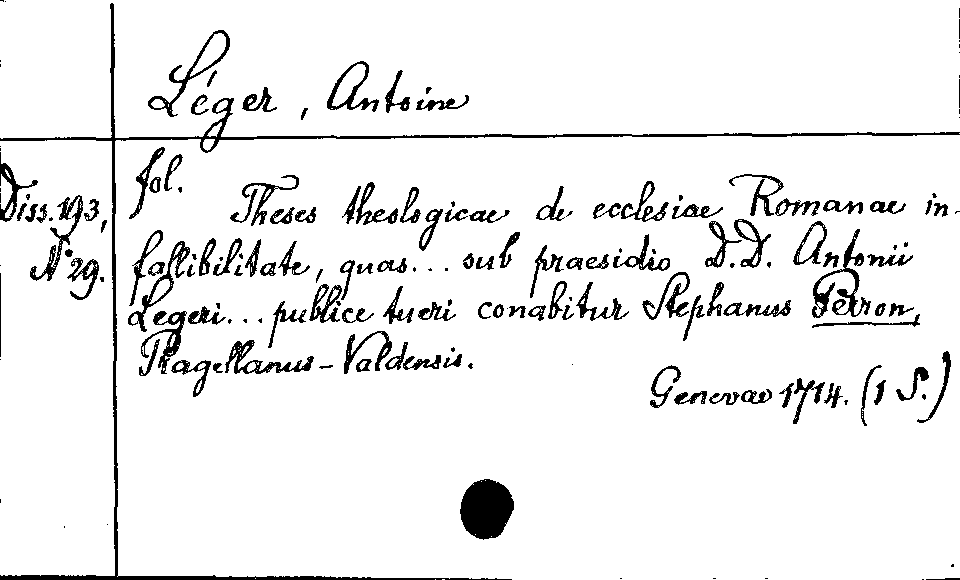 Léger, Antoine
fol.
Diss. 193,
N° 29.
Theses theologicae de ecclesiae Romanae in-
fallibilitate, quas... sub praesidio D.D. Antonii
Legeri... publice tueri conabitur Stephanus Peìron,
Pragellanus-Valdensis.
Genevae 1714. (1 S.)